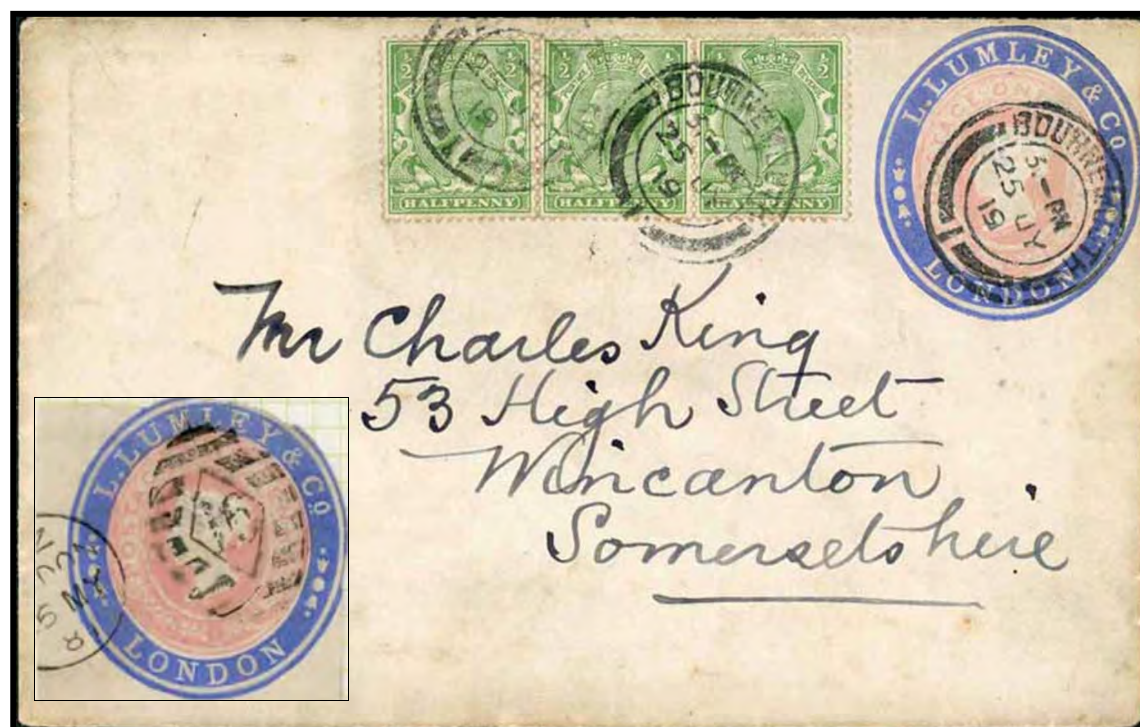 ½ ½ ½ ½ ½ ½
HALFPENNY HALFPENNY HALFPENNY
BOURNEMOUTH
25
19
L. LUMLEY & CO
LONDON
BOURNEMOUTH
5 - PM
25 JY
19
Mr Charles King
53 High Street
Wincanton
Somersetshire
L. LUMLEY & CO
LONDON